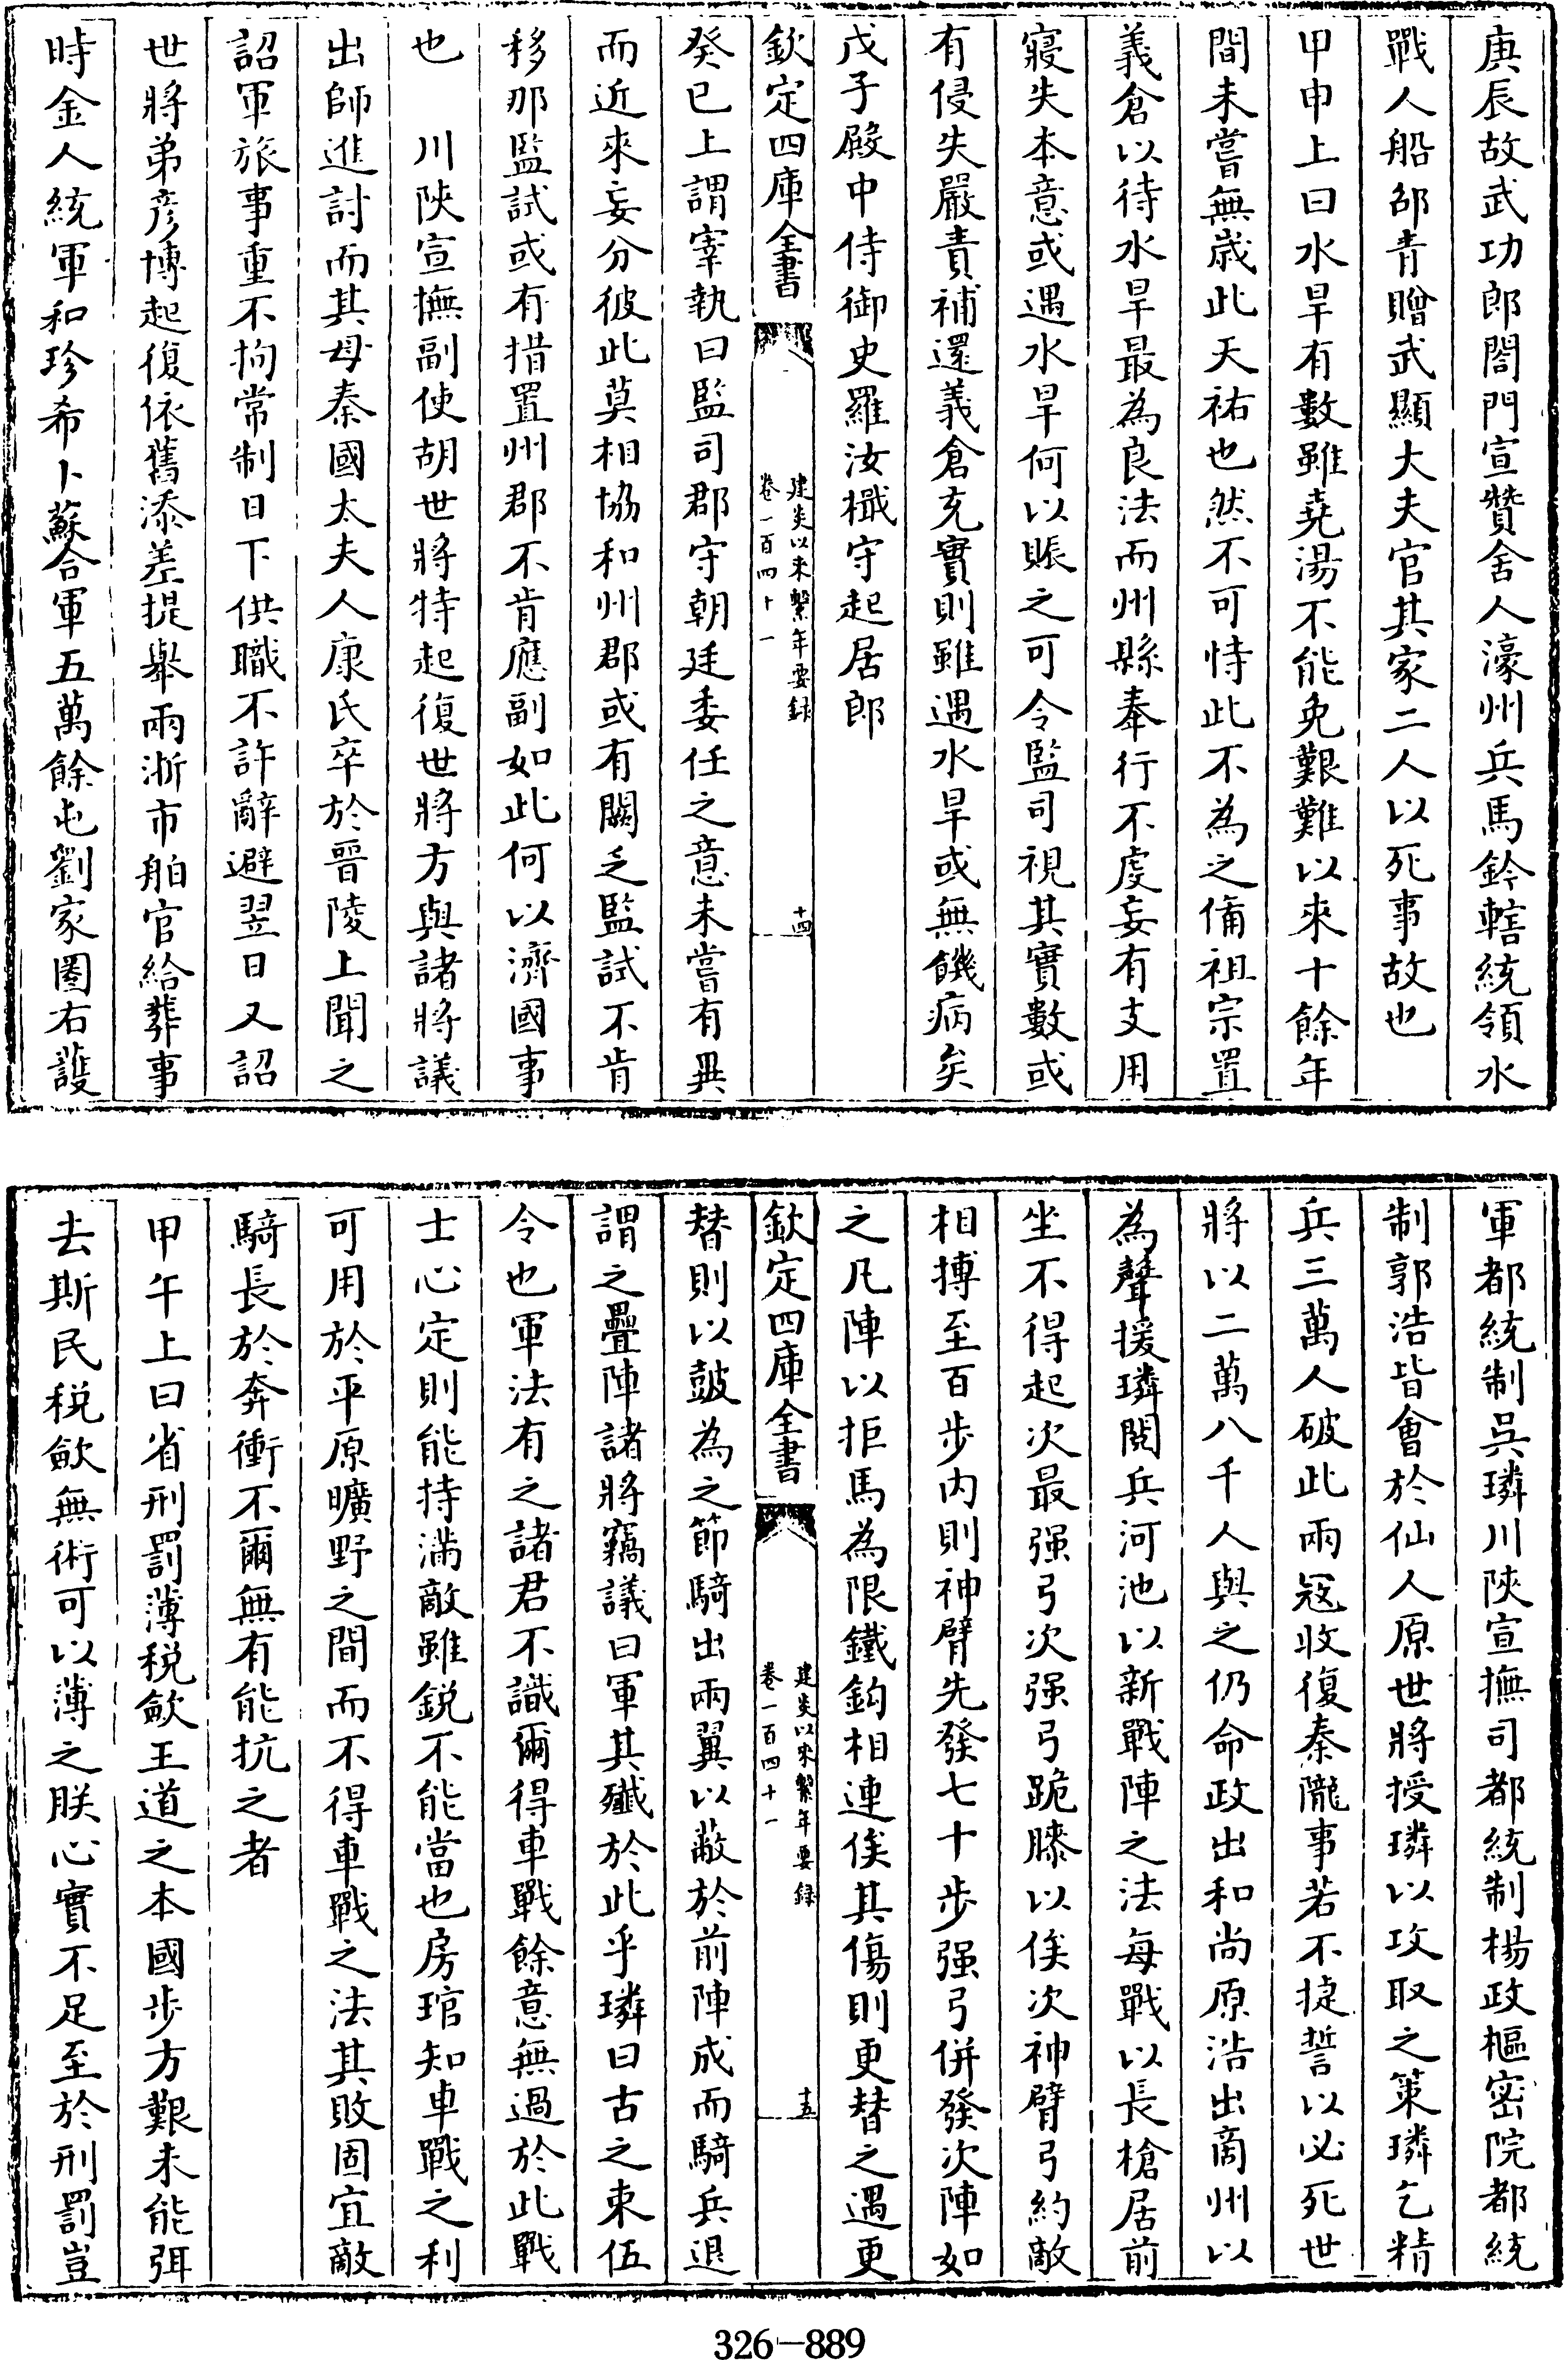 庚辰故武功郎閤門宣贊舍人濠州兵馬鈐轄統領水
戰人船邵青贈武顯大夫官其家二人以死事故也
甲申上曰水旱有數雖堯湯不能免艱難以來十餘年
間未嘗無歳此天祐也然不可恃此不為之備祖宗置
義倉以待水旱最為良法而州縣奉行不䖍妄有支用
寢失本意或遇水旱何以賑之可令監司視其實數或
有侵失嚴責補還義倉充實則雖遇水旱或無饑病矣
戊子殿中侍御史羅汝檝守起居郎
欽定四庫全書
建炎以來繫年要録
卷一百四十一
十四
癸巳上謂宰執曰監司郡守朝廷委任之意未嘗有異
而近來妄分彼此莫相協和州郡或有闕乏監試不肯
移那監試或有措置州郡不肯應副如此何以濟國事
也　川陜宣撫副使胡世將特起復世將方與諸將議
出師進討而其母秦國太夫人康氏卒於晉陵上聞之
詔軍旅事重不拘常制日下供職不許辭避翌日又詔
世將弟彦博起復依舊添差提舉兩浙市舶官給葬事
時金人統軍和珍希卜蘇合軍五萬餘屯劉家圏右護
軍都統制吳璘川陜宣撫司都統制楊政樞密院都統
制郭浩皆會於仙人原世將授璘以攻取之策璘乞精
兵三萬人破此兩冦收復秦隴事若不捷誓以必死世
將以二萬八千人與之仍命政出和尚原浩出商州以
為聲援璘閱兵河池以新戰陣之法每戰以長槍居前
坐不得起次最强弓次强弓跪膝以俟次神臂弓約敵
相搏至百步内則神臂先發七十步强弓併發次陣如
之凡陣以拒馬為限鐵鈎相連俟其傷則更替之遇更
欽定四庫全書
建炎以來繫年要録
卷一百四十一
十五
替則以鼓為之節騎出兩翼以蔽於前陣成而騎兵退
謂之疊陣諸將竊議曰軍其殱於此乎璘曰古之束伍
令也軍法有之諸君不識爾得車戰餘意無過於此戰
士心定則能持滿敵雖銳不能當也房琯知車戰之利
可用於平原曠野之間而不得車戰之法其敗固宜敵
騎長於奔衝不爾無有能抗之者
甲午上曰省刑罰薄税歛王道之本國步方艱未能弭
去斯民税歛無術可以薄之朕心實不足至於刑罰豈
326-889